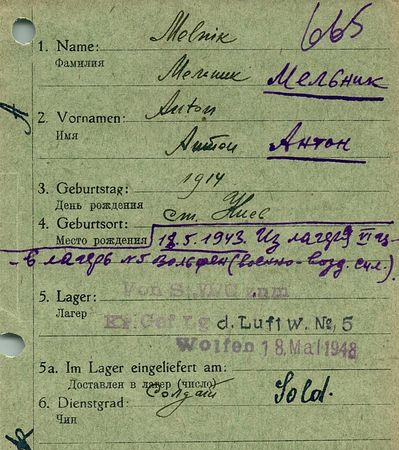 665
Melnik
1. Name:
Фамилия
Мельник Мельник
Anton
2. Vornamen:
Имя
Антон Антон
3. Geburtstag: 1914
День рождения
4. Geburtsort: ст. Киев
Место рождения 18.5.1943. Из лагеря VI
в лагерь №5 Вольфен (военно-возд. сил.).
5. Lager: Von zum
Лагер
Kr. Gef. Lg d. Luftw. No, 5
Wolfen 18. Mai 1943
5a. Im Lager eingeliefert am:
Доставлен в лагер (число)
6. Dienstgrad: Солдат Sold.
Чин